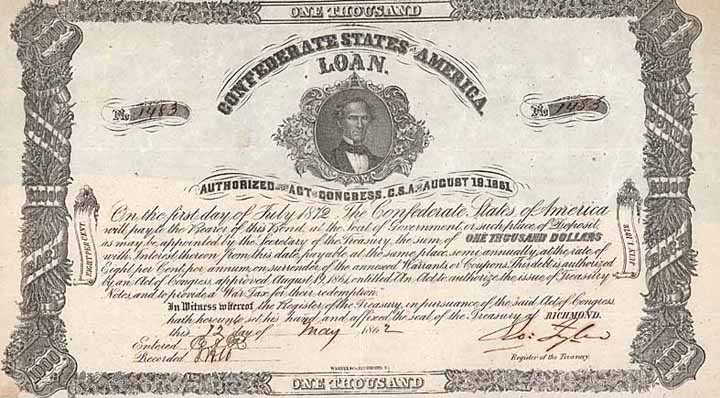 ONE THOUSAND
CONFEDERATE STATES OF AMERICA
LOAN.
No 1483
No 1483
AUTHORIZED BY ACT OF CONGRESS, C.S.A. OF AUGUST 19.1861.
EIGHT PER CENT
JULY 1. 1872
On the first day of July 1872 The Confederate States of America
will pay to the Bearer of this Bond, at the seat of Government, or such place of Deposit,
as may be appointed by the Secretary of the Treasury, the sum of ONE THOUSAND DOLLARS
with Interest thereon from this date, payable at the same place semi annually, at the rate of
Eight per Cent, per annum, on surrender of the annexed Warrants or Coupons. This debt is authorized
by an Act of Congress, approved August 19. 1861, entitled An Act to authorize the issue of Treasury
Notes, and to provide a War Tax for their redemption.
In Witness whereof, the Register of the Treasury, in pursuance of the said Act of Congress,
hath hereunto set his hand, and affixed the seal of the Treasury at RICHMOND.
this 12 day of May 1862
Entered
Recorded
Ro: Tyler
Register of the Treasury
ONE THOUSAND